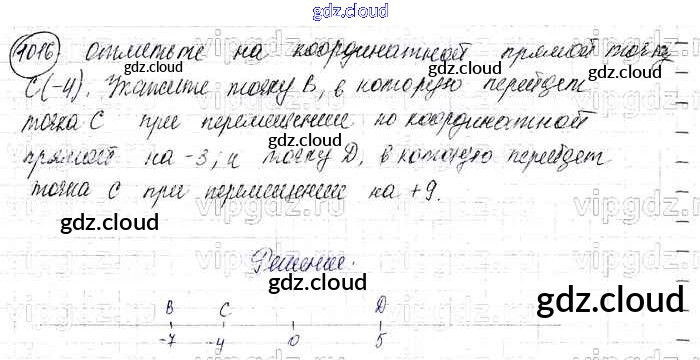 gdz.cloud
1016 Отметьте на координатной прямой точку
C(-4). Укажите точку B, в которую перейдет
gdz.cloud gdz.cloud
точка C при перемещении по координатной
прямой на -3; и точку D, в которую перейдет
точка C при перемещении на +9.
gdz.cloud gdz.cloud
vipgdz.ru vipgdz.ru vipgdz
Решение.
gdz.cloud
B C D
-7 -4 0 5
gdz.cloud